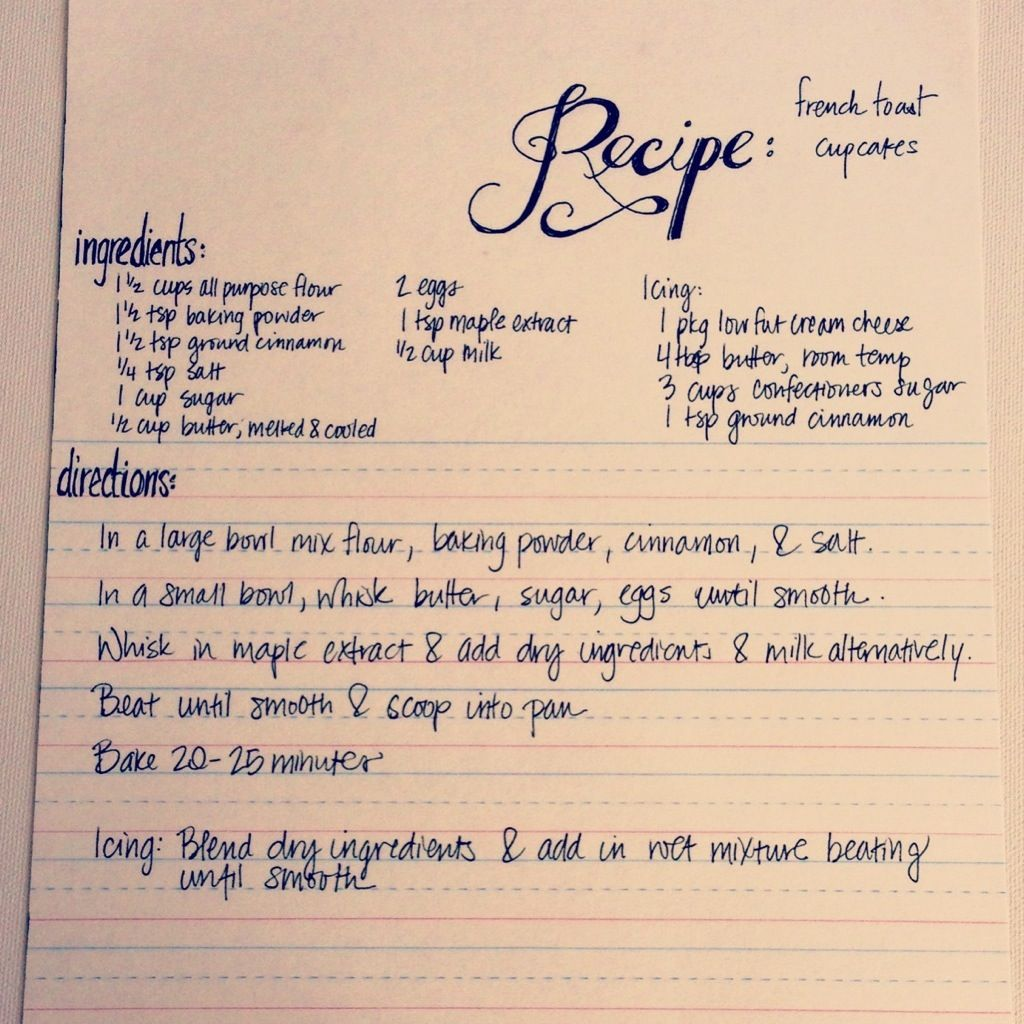 Recipe: french toast
cupcakes
ingredients:
1 1/2 cups all purpose flour
1 1/2 tsp baking powder
1 1/2 tsp ground cinnamon
1/4 tsp salt
1 cup sugar
1/2 cup butter, melted & cooled
2 eggs
1 tsp maple extract
1/2 cup milk
Icing:
1 pkg low fat cream cheese
4 tbsp butter, room temp
3 cups confectioners sugar
1 tsp ground cinnamon
directions:
In a large bowl mix flour, baking powder, cinnamon, & salt.
In a small bowl, whisk butter, sugar, eggs until smooth.
Whisk in maple extract & add dry ingredients & milk alternatively.
Beat until smooth & scoop into pan
Bake 20-25 minutes
Icing: Blend dry ingredients & add in wet mixture beating
until smooth